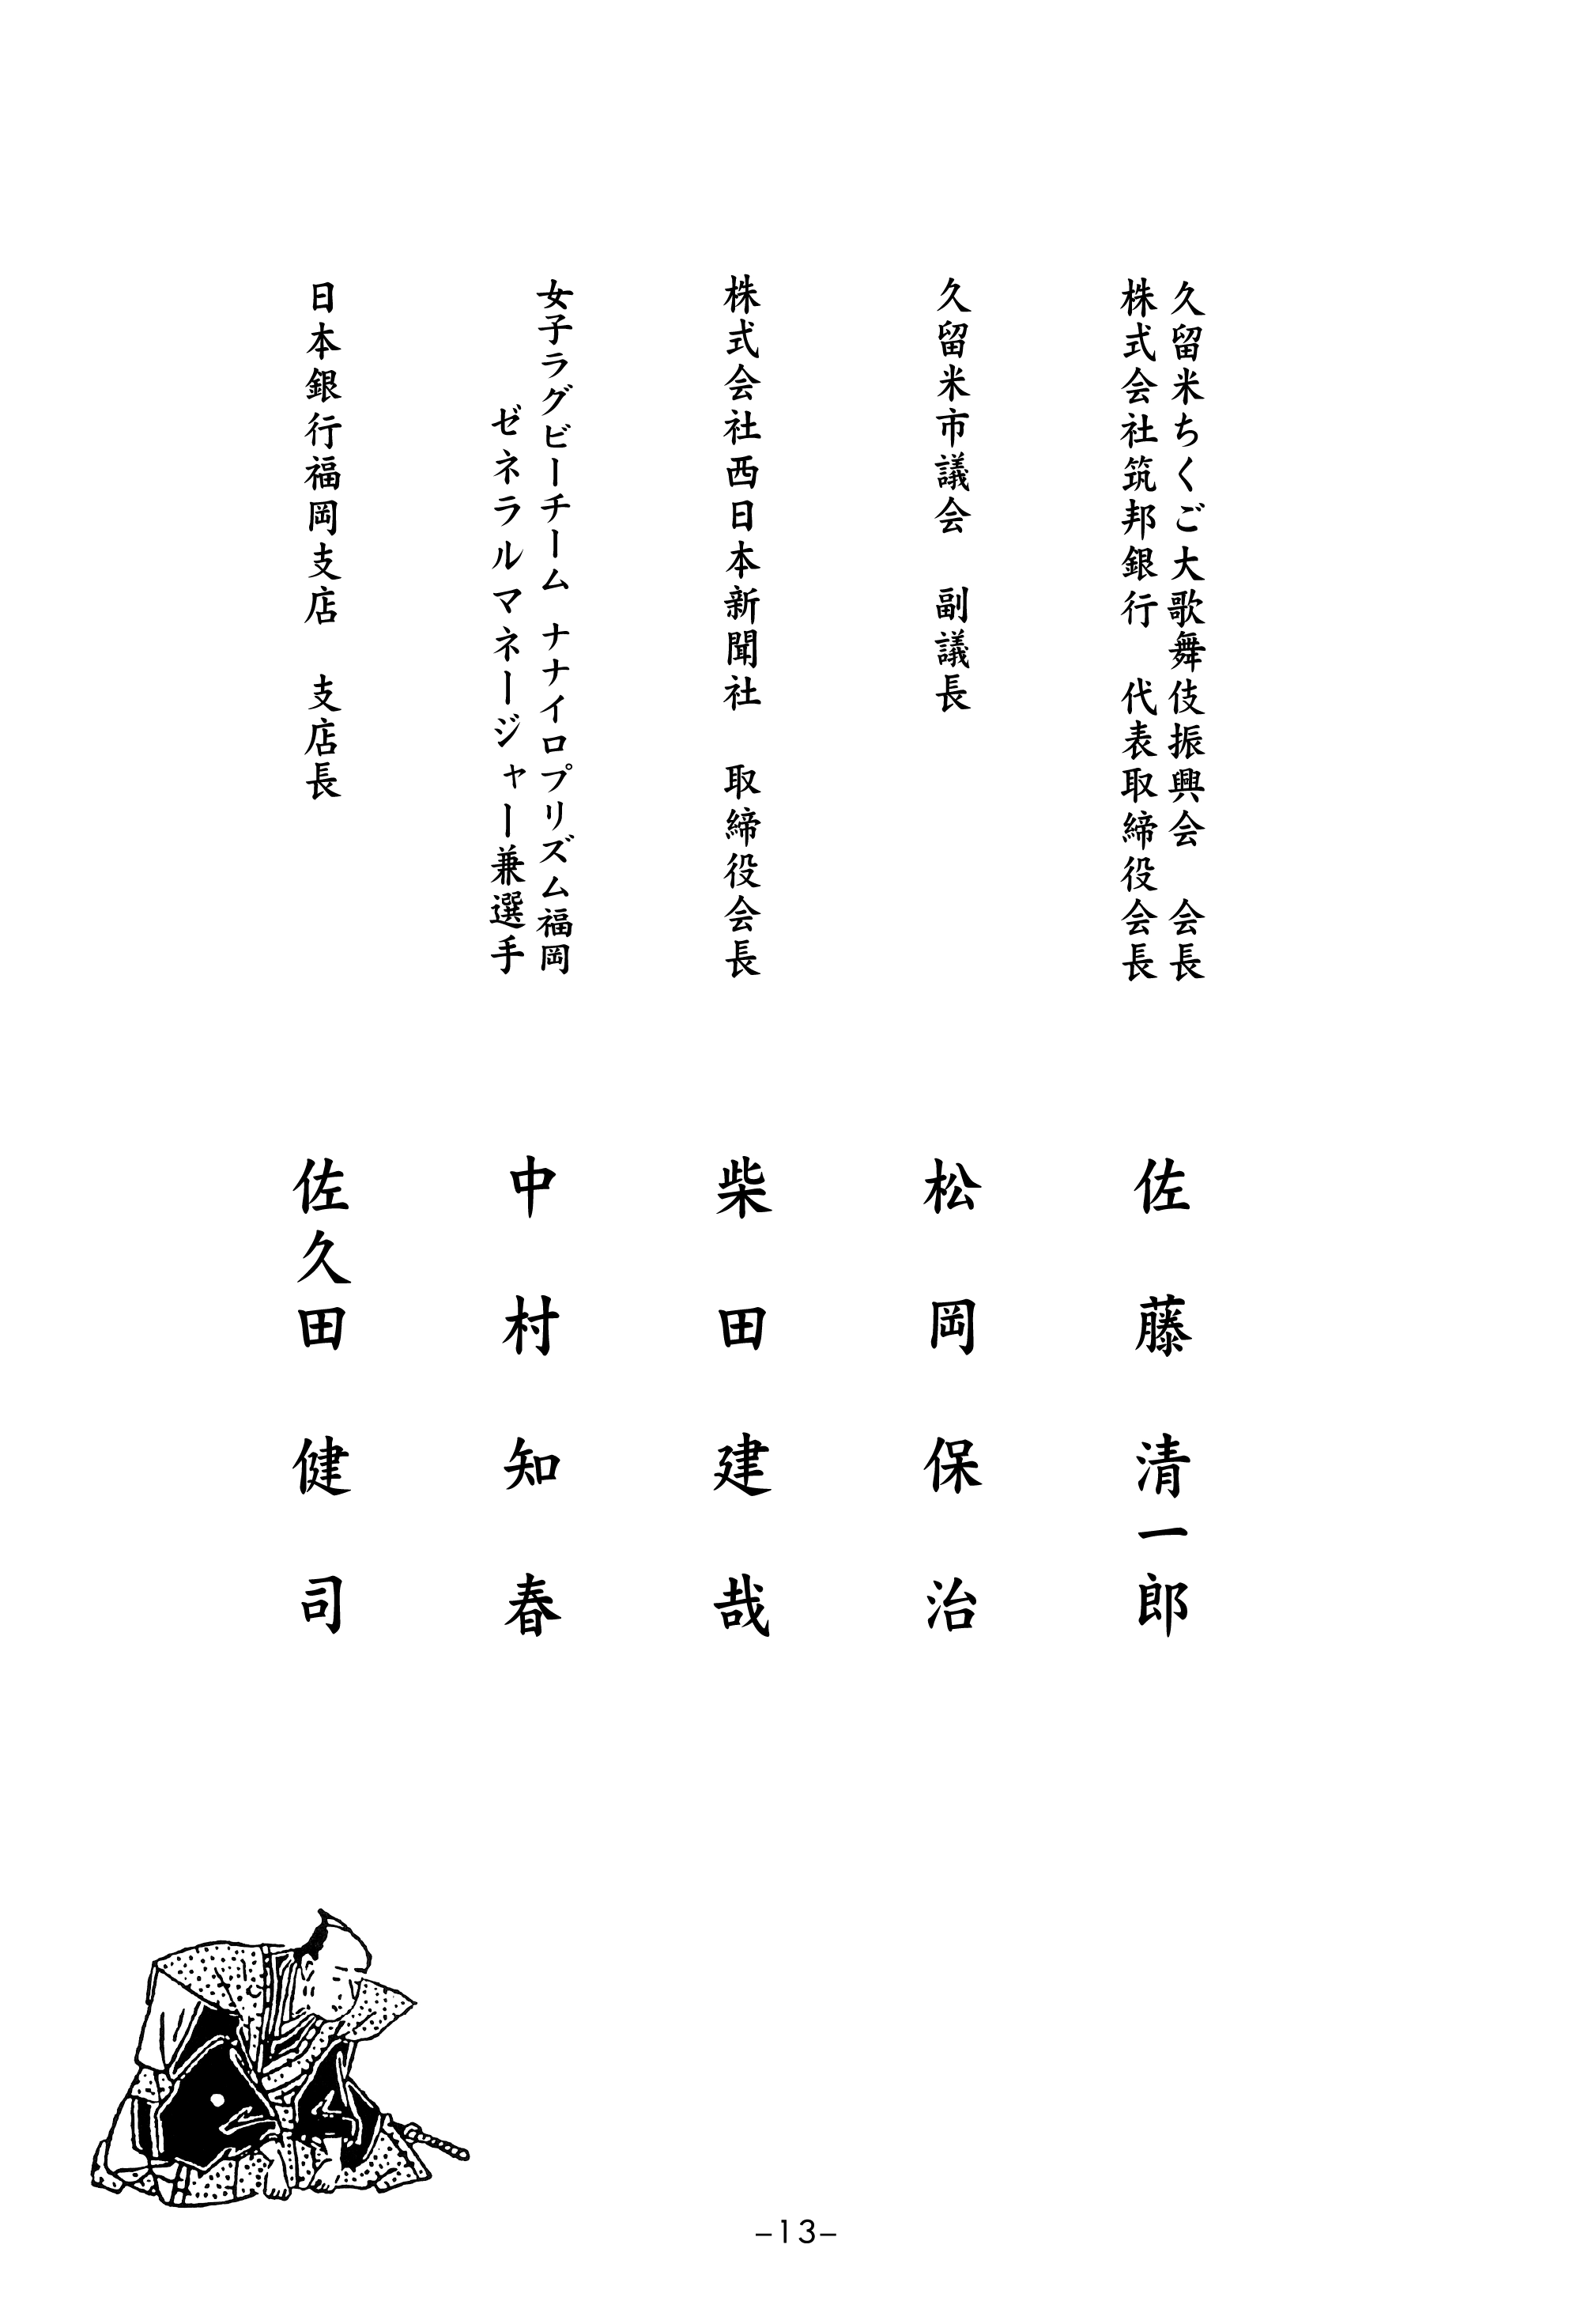 久留米ちくご大歌舞伎振興会　会長
株式会社筑邦銀行　代表取締役会長
佐藤清一郎
久留米市議会　副議長
松岡保治
株式会社西日本新聞社　取締役会長
柴田建哉
女子ラグビーチーム ナナイロプリズム福岡
ゼネラルマネージャー兼選手
中村知春
日本銀行福岡支店　支店長
佐久田健司
–13–